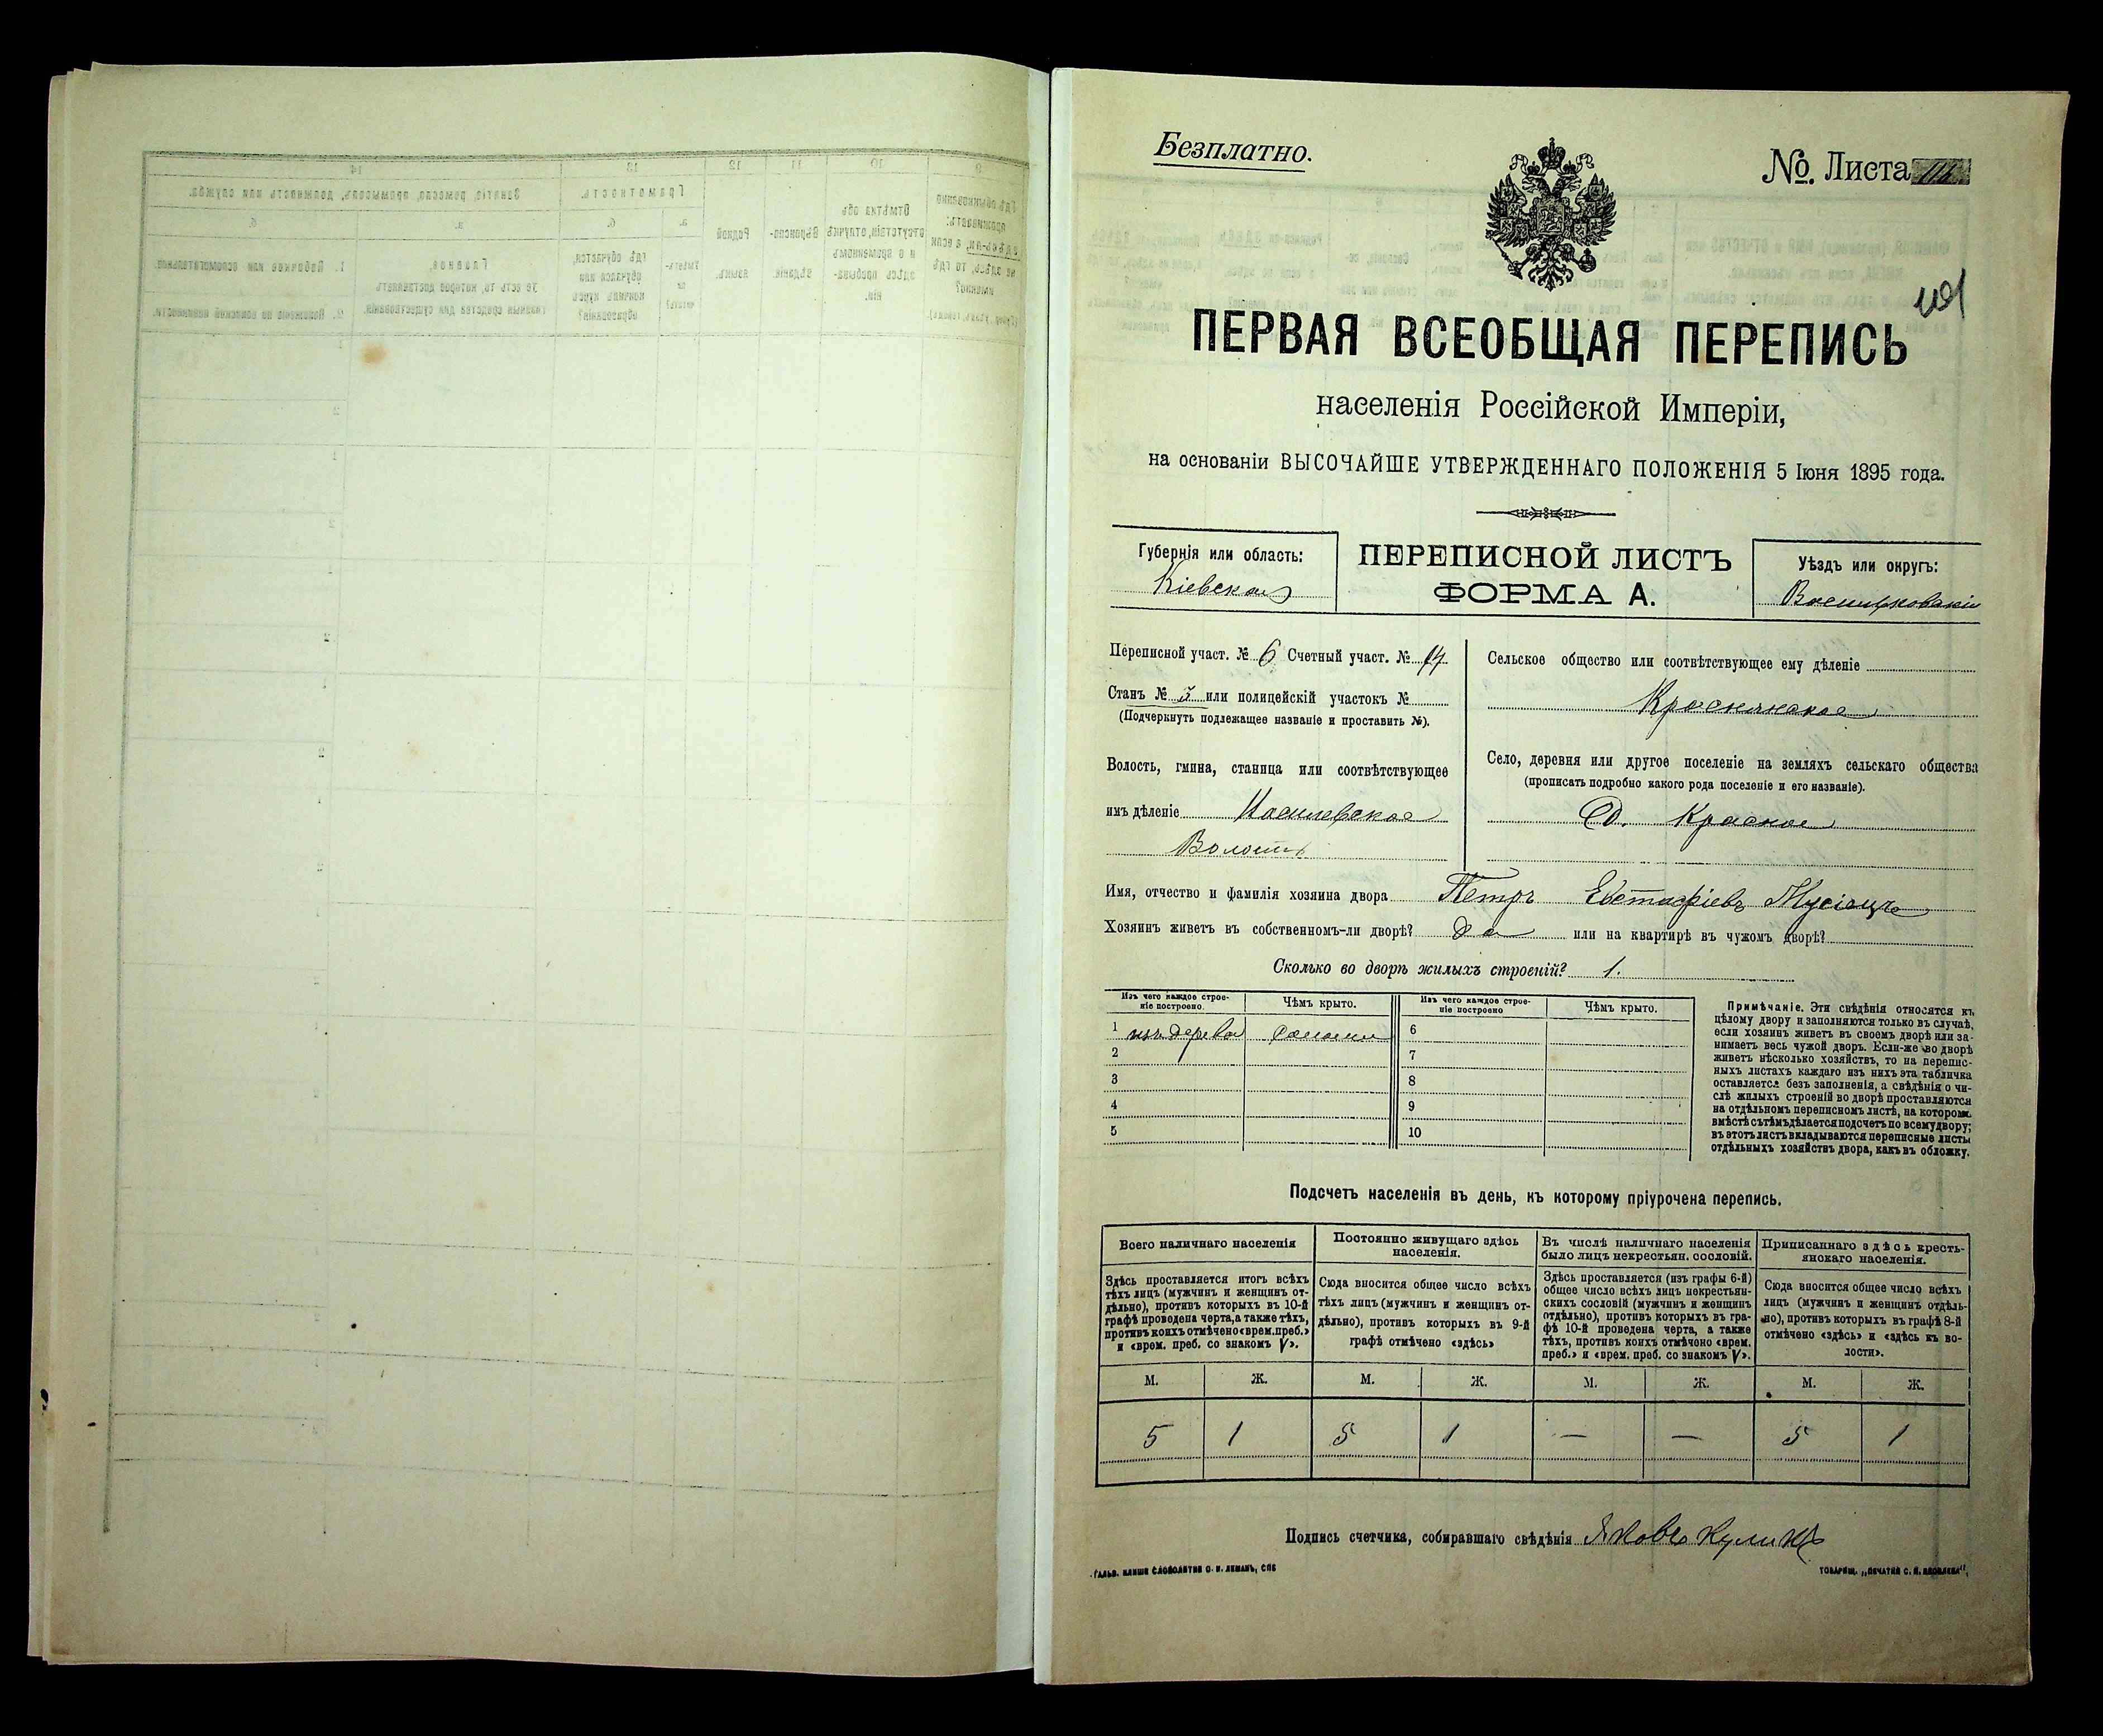 Безплатно.
№ Листа
ПЕРВАЯ ВСЕОБЩАЯ ПЕРЕПИСЬ
населенія Россійской Имперіи,
на основаніи ВЫСОЧАЙШЕ УТВЕРЖДЕННАГО ПОЛОЖЕНІЯ 5 Іюня 1895 года.
Губернія или область:
Кіевская
ПЕРЕПИСНОЙ ЛИСТЪ
ФОРМА А.
Уѣздъ или округъ:
Переписной участ. № 6 Счетный участ. № 14
Станъ № 3 или полицейскій участокъ №
(Подчеркнуть подлежащее названіе и проставить №).
Волость, гмина, станица или соотвѣтствующее
имъ дѣленіе
Волость
Сельское общество или соотвѣтствующее ему дѣленіе
Краснянское
Село, деревня или другое поселеніе на земляхъ сельскаго общества
(прописать подробно какого рода поселеніе и его названіе).
Д. Красное
Имя, отчество и фамилія хозяина двора Петръ Евстафіевъ Мусіецъ
Хозяинъ живетъ въ собственномъ-ли дворѣ? да или на квартирѣ въ чужомъ дворѣ?
Сколько во дворѣ жилыхъ строеній? 1.
Изъ чего каждое строеніе построено
Чѣмъ крыто.
Изъ чего каждое строеніе построено
Чѣмъ крыто.
1 изъ дерева соломы 6
2 7
3 8
4 9
5 10
Примѣчаніе. Эти свѣдѣнія относятся къ
цѣлому двору и заполняются только въ случаѣ,
если хозяинъ живетъ въ своемъ дворѣ или за-
нимаетъ весь чужой дворъ. Если-же во дворѣ
живетъ нѣсколько хозяйствъ, то на перепис-
ныхъ листахъ каждаго изъ нихъ эта табличка
оставляется безъ заполненія, а свѣдѣнія о чи-
слѣ жилыхъ строеній во дворѣ проставляются
на отдѣльномъ переписномъ листѣ, на которомъ
вмѣстѣ съ тѣмъ дѣлается подсчетъ по всему двору;
въ этотъ листъ вкладываются переписные листы
отдѣльныхъ хозяйствъ двора, какъ въ обложку.
Подсчетъ населенія въ день, къ которому пріурочена перепись.
Всего наличнаго населенія
Здѣсь проставляется итогъ всѣхъ
тѣхъ лицъ (мужчинъ и женщинъ от-
дѣльно), противъ которыхъ въ 10-й
графѣ проведена черта, а также тѣхъ,
противъ коихъ отмѣчено «врем. преб.»
и «врем. преб. со знакомъ V».
Постоянно живущаго здѣсь
населенія.
Сюда вносится общее число всѣхъ
тѣхъ лицъ (мужчинъ и женщинъ от-
дѣльно), противъ которыхъ въ 9-й
графѣ отмѣчено «здѣсь»
Въ числѣ наличнаго населенія
было лицъ некрестьян. сословій.
Здѣсь проставляется (изъ графы 6-й)
общее число всѣхъ лицъ некрестьян-
скихъ сословій (мужчинъ и женщинъ
отдѣльно), противъ которыхъ въ гра-
фѣ 10-й проведена черта, а также
тѣхъ, противъ коихъ отмѣчено «врем.
преб.» и «врем. преб. со знакомъ V».
Приписаннаго здѣсь кресть-
янскаго населенія.
Сюда вносится общее число всѣхъ
лицъ (мужчинъ и женщинъ отдѣль-
но), противъ которыхъ въ графѣ 8-й
отмѣчено «здѣсь» и «здѣсь къ во-
лости».
М. Ж. М. Ж. М. Ж. М. Ж.
5 1 5 1 — — 5 1
Подпись счетчика, собиравшаго свѣдѣнія Яковъ Куликъ
ГАЛЬВ. КЛИШЕ СЛОВОЛИТНИ О. И. ЛЕМАНЪ, СПБ
ТОВАРИЩ. „ПЕЧАТНЯ С. П. ЯКОВЛЕВА“.